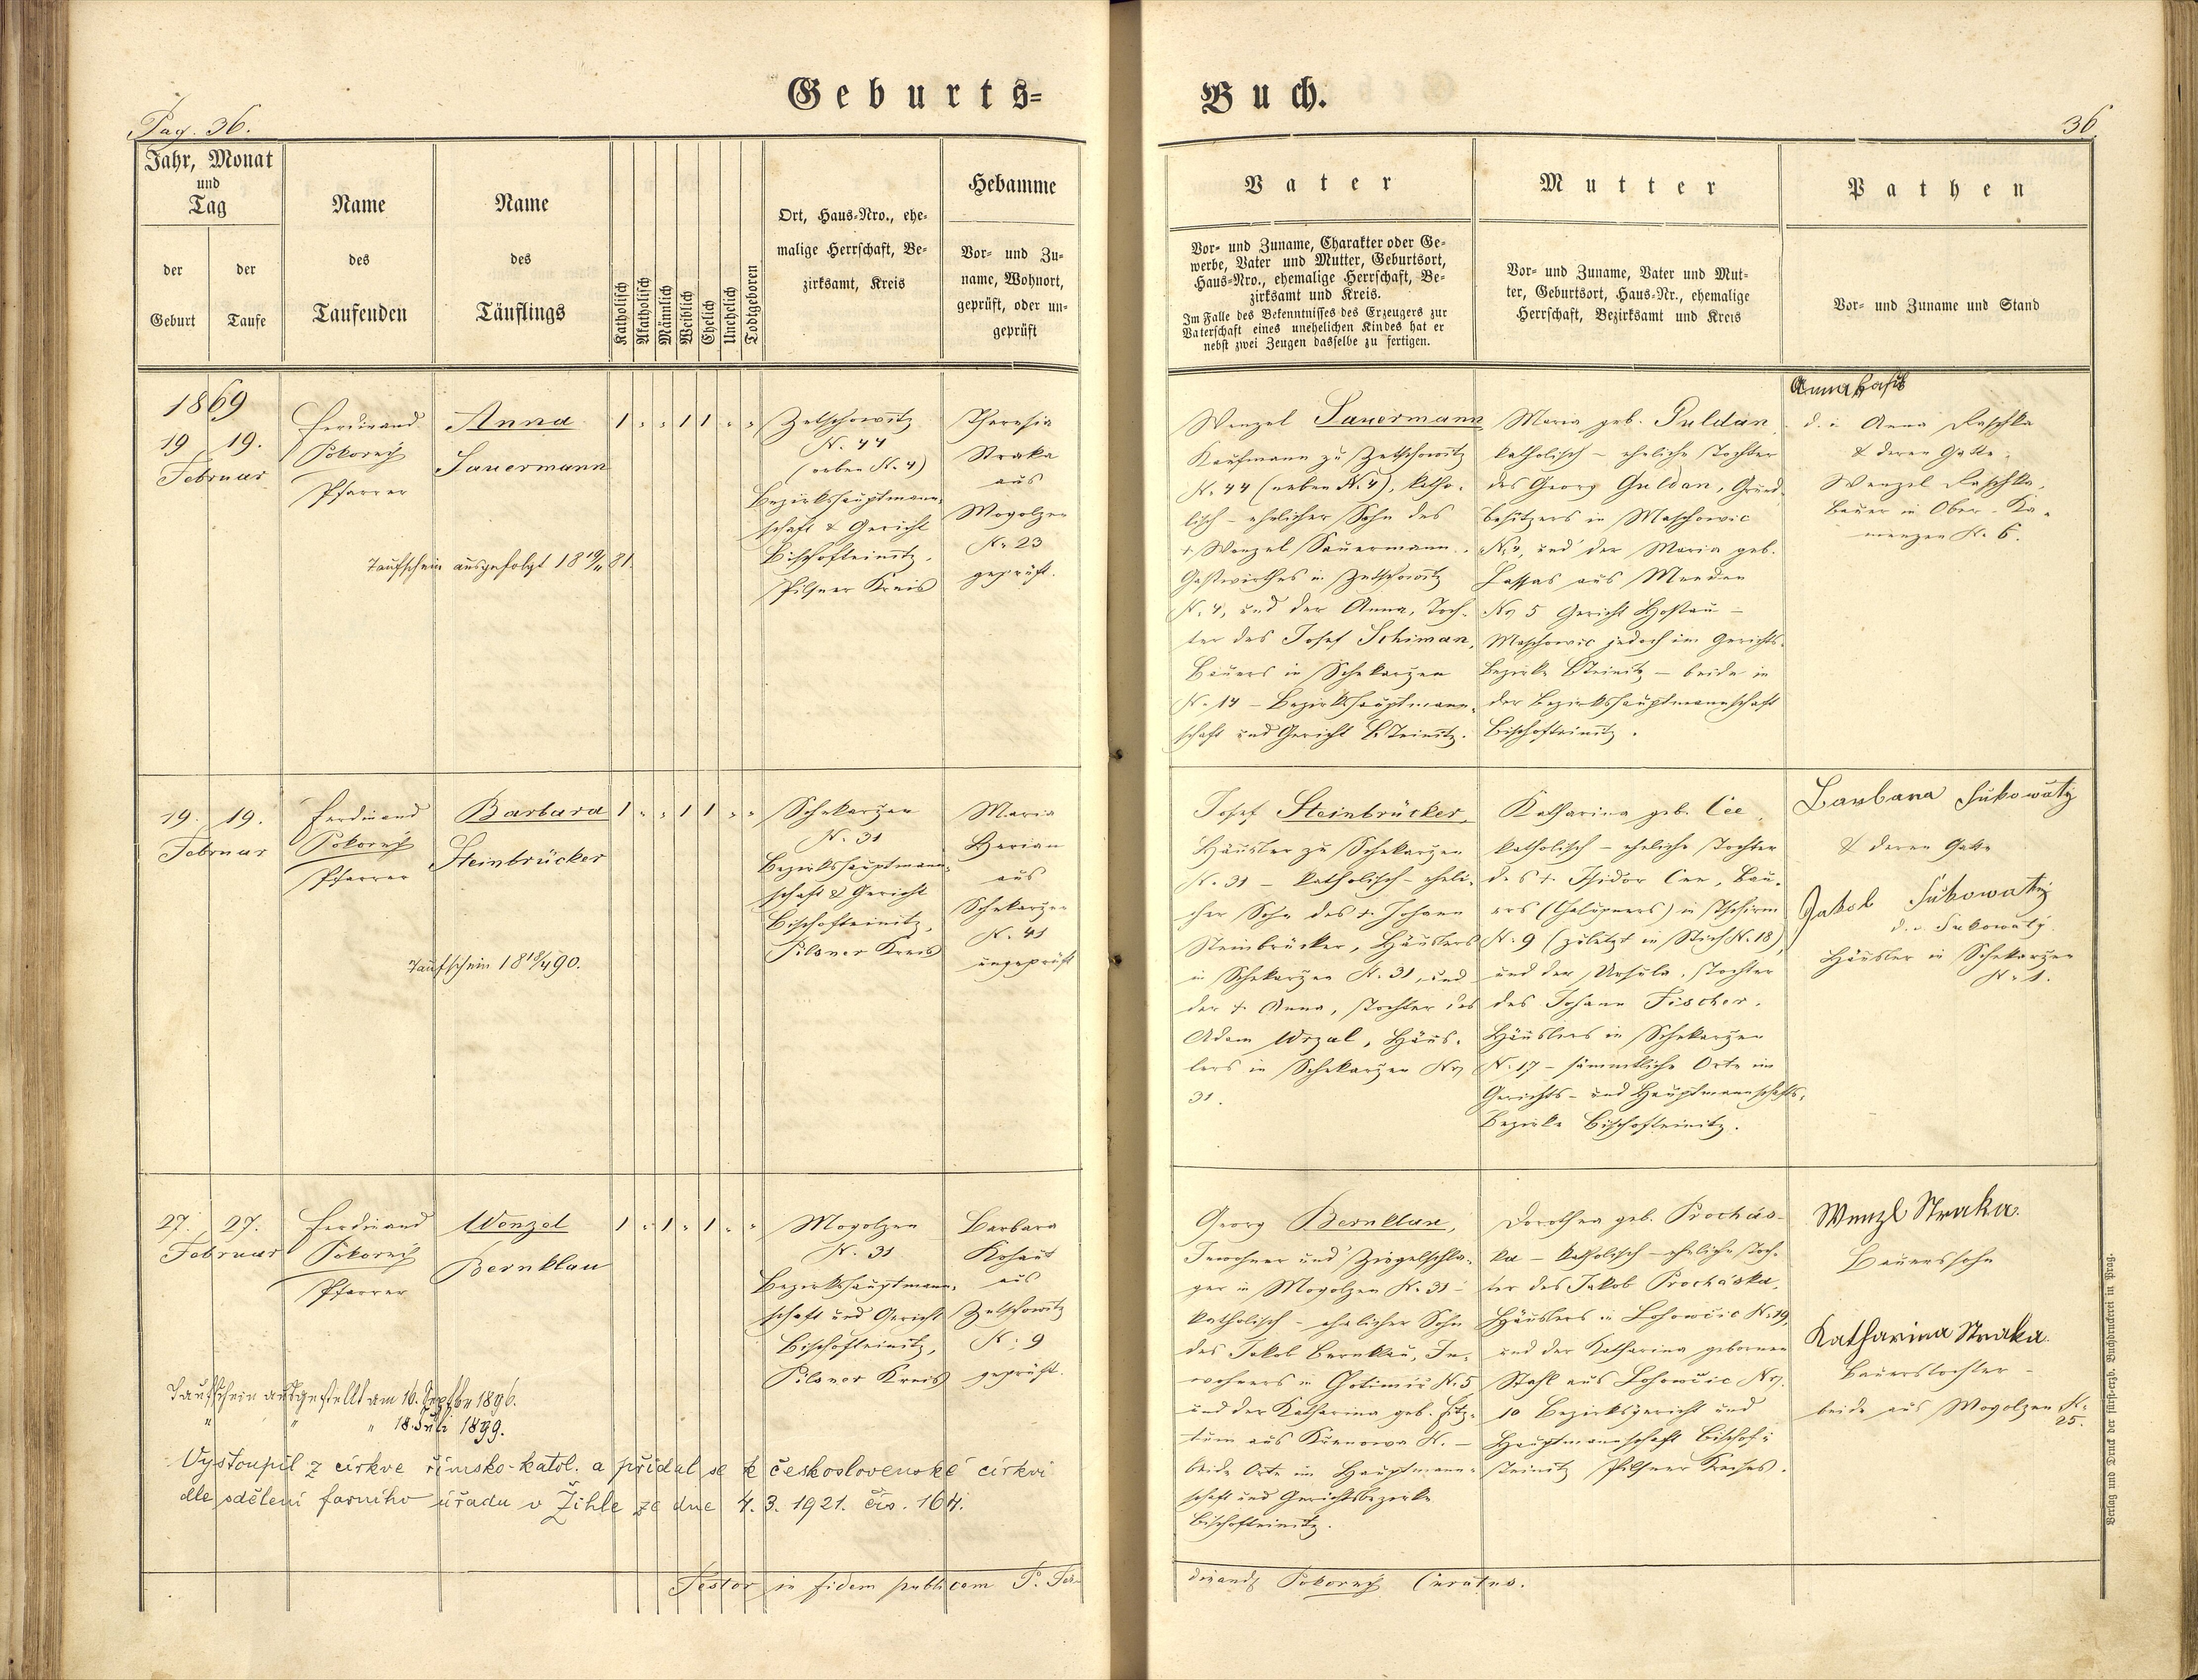 Geburts=
Buch.
Pag. 36.
36
Jahr, Monat
und
Tag
der
Geburt
der
Taufe
Name
des
Taufenden
Name
des
Täuflings
Katholisch
Akatholisch
Männlich
Weiblich
Ehelich
Unehelich
Todtgeboren
Ort, Haus=Nro., ehe=
malige Herrschaft, Be=
zirksamt, Kreis
Hebamme
Vor= und Zu=
name, Wohnort,
geprüft, oder un=
geprüft
Vater
Vor= und Zuname, Charakter oder Ge=
werbe, Vater und Mutter, Geburtsort,
Haus=Nro., ehemalige Herrschaft, Be=
zirksamt und Kreis.
Im Falle des Bekenntnisses des Erzeugers zur
Vaterschaft eines unehelichen Kindes hat er
nebst zwei Zeugen dasselbe zu fertigen.
Mutter
Vor= und Zuname, Vater und Mut=
ter, Geburtsort, Haus=Nr., ehemalige
Herrschaft, Bezirksamt und Kreis
Pathen
Vor= und Zuname und Stand
1869
19 19.
Februar
Ferdinand
Pokorný
Pfarrer
Anna
Sauermann
1 " " 1 1 " "
Zetschowitz
N. 44
(neben N. 4)
Bezirkshauptmann=
schaft & Gericht
Bischofteinitz,
Pilsner Kreis
Theresia
Straka
aus
Mogolzen
N. 23
geprüft.
Taufschein ausgefolgt 18 19/11 81.
Wenzel Sauermann
Kaufmann zu Zetschowitz
N. 44 (neben N. 4), katho=
lisch - ehelicher Sohn des
+ Wenzel Sauermann,
Gastwirthes in Zetschowitz
N. 4, und der Anna, Toch=
ter des Josef Schiman,
Bauers in Schekarzen
N. 14 - Bezirkshauptmann=
schaft und Gericht B.Teinitz.
Maria geb. Guldan,
katholisch - eheliche Tochter
des Georg Guldan, Grund=
besitzers in Maschowic
N. 4, und der Maria geb.
Lassas aus Meeden
No 5 Gericht Hostau -
Maschowic jedoch im Gerichts=
bezirke BTeinitz - beide in
der Bezirkshauptmannschaft
Bischofteinitz.
d. i. Anna Raschka
& deren Gatte,
Wenzel Raschka,
Bauer in Ober-Ka=
menzen N. 6.
19. 19.
Februar
Ferdinand
Pokorný
Pfarrer
Barbara
Steinbrücker
1 " " 1 1 " "
Schekarzen
N. 31
Bezirkshauptmann=
schaft & Gericht
Bischofteinitz,
Pilsner Kreis
Maria
Herian
aus
Schekarzen
N. 41
ungeprüft
Taufschein 18 18/4 90.
Josef Steinbrücker,
Häusler zu Schekarzen
N. 31 - katholisch - eheli=
cher Sohn des + Johann
Steinbrücker, Häuslers
in Schekarzen N. 31, und
der + Anna, Tochter des
Adam Wrzal, Häus=
lers in Schekarzen No
31.
Katharina geb. Cee,
katholisch - eheliche Tochter
des + Isidor Cee, Bau=
ers (Chalupners) in
N. 9 (zuletzt in Stich N. 18),
und der Ursula, Tochter
des Johann Fischer,
Häuslers in Schekarzen
N. 17 - sämmtliche Orte im
Gerichts- und Hauptmannschafts=
Bezirke Bischofteinitz.
Barbara Sukowaty
& deren Gatte
Jakob Sukowatý
d. i. Sukowatý
Häusler in Schekarzen
N. 1.
27. 27.
Februar
Ferdinand
Pokorný
Pfarrer
Wenzel
Bernklau
1 " 1 " 1 " "
Mogolzen
N. 31
Bezirkshauptmann=
schaft und Gericht
Bischofteinitz,
Pilsner Kreis
Barbara
Kohaut
aus
Zetschowitz
N. 9
geprüft.
Georg Bernklau,
Inwohner und Ziegelschla=
ger in Mogolzen N. 31 -
katholisch - ehelicher Sohn
des Jakob Bernklau, In=
wohners in Chotimir N. 5
und der Katharina geb. Fitz=
tum aus Kurnowa N. -
beide Orte im Hauptmann=
schaft und Gerichtsbezirke
Bischofteinitz.
Dorothea geb. Procház=
ka - katholisch - eheliche Toch=
ter des Jakob Procháska,
Häuslers in Lohowčic N. 19
und der Katharina gebornen
Stahl aus Lohowčic No.
10 Bezirksgericht und
Hauptmannschaft Bischof=
teinitz Pilsner Kreises.
Wenzl Straka
Bauerssohn
Katharina Straka
Bauerstochter -
beide aus Mogolzen N.
25.
Taufschein ausgestellt am 16. Septbr 1896.
" " " 18. Juli 1899.
Vystoupil z církve římsko-katol. a přidal se k československé církvi
dle sdělení farního úřadu v Žihle ze dne 4. 3. 1921. čís. 164.
Testor in fidem publicam P. Fer=
dinand Pokorný Curatus.
Verlag und Druck der fürst=erzb. Buchdruckerei in Prag.